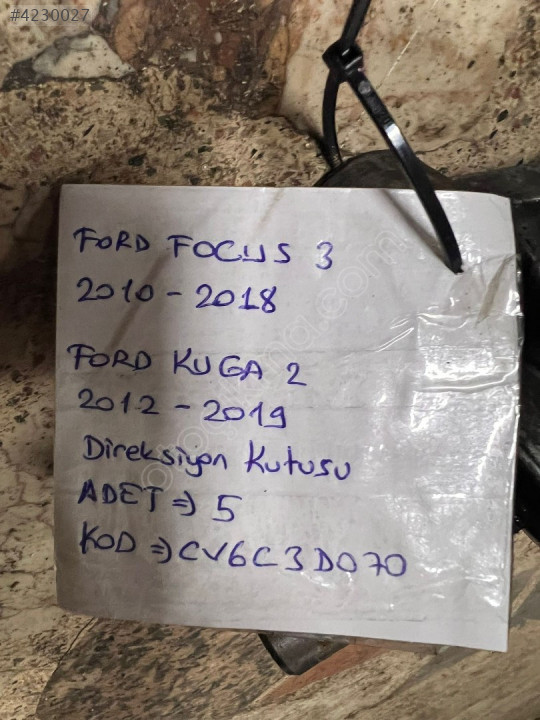 #4230027
FORD FOCUS 3
2010 - 2018
FORD KUGA 2
2012 - 2019
Direksiyon Kutusu
ADET => 5
KOD => CV6C3D070